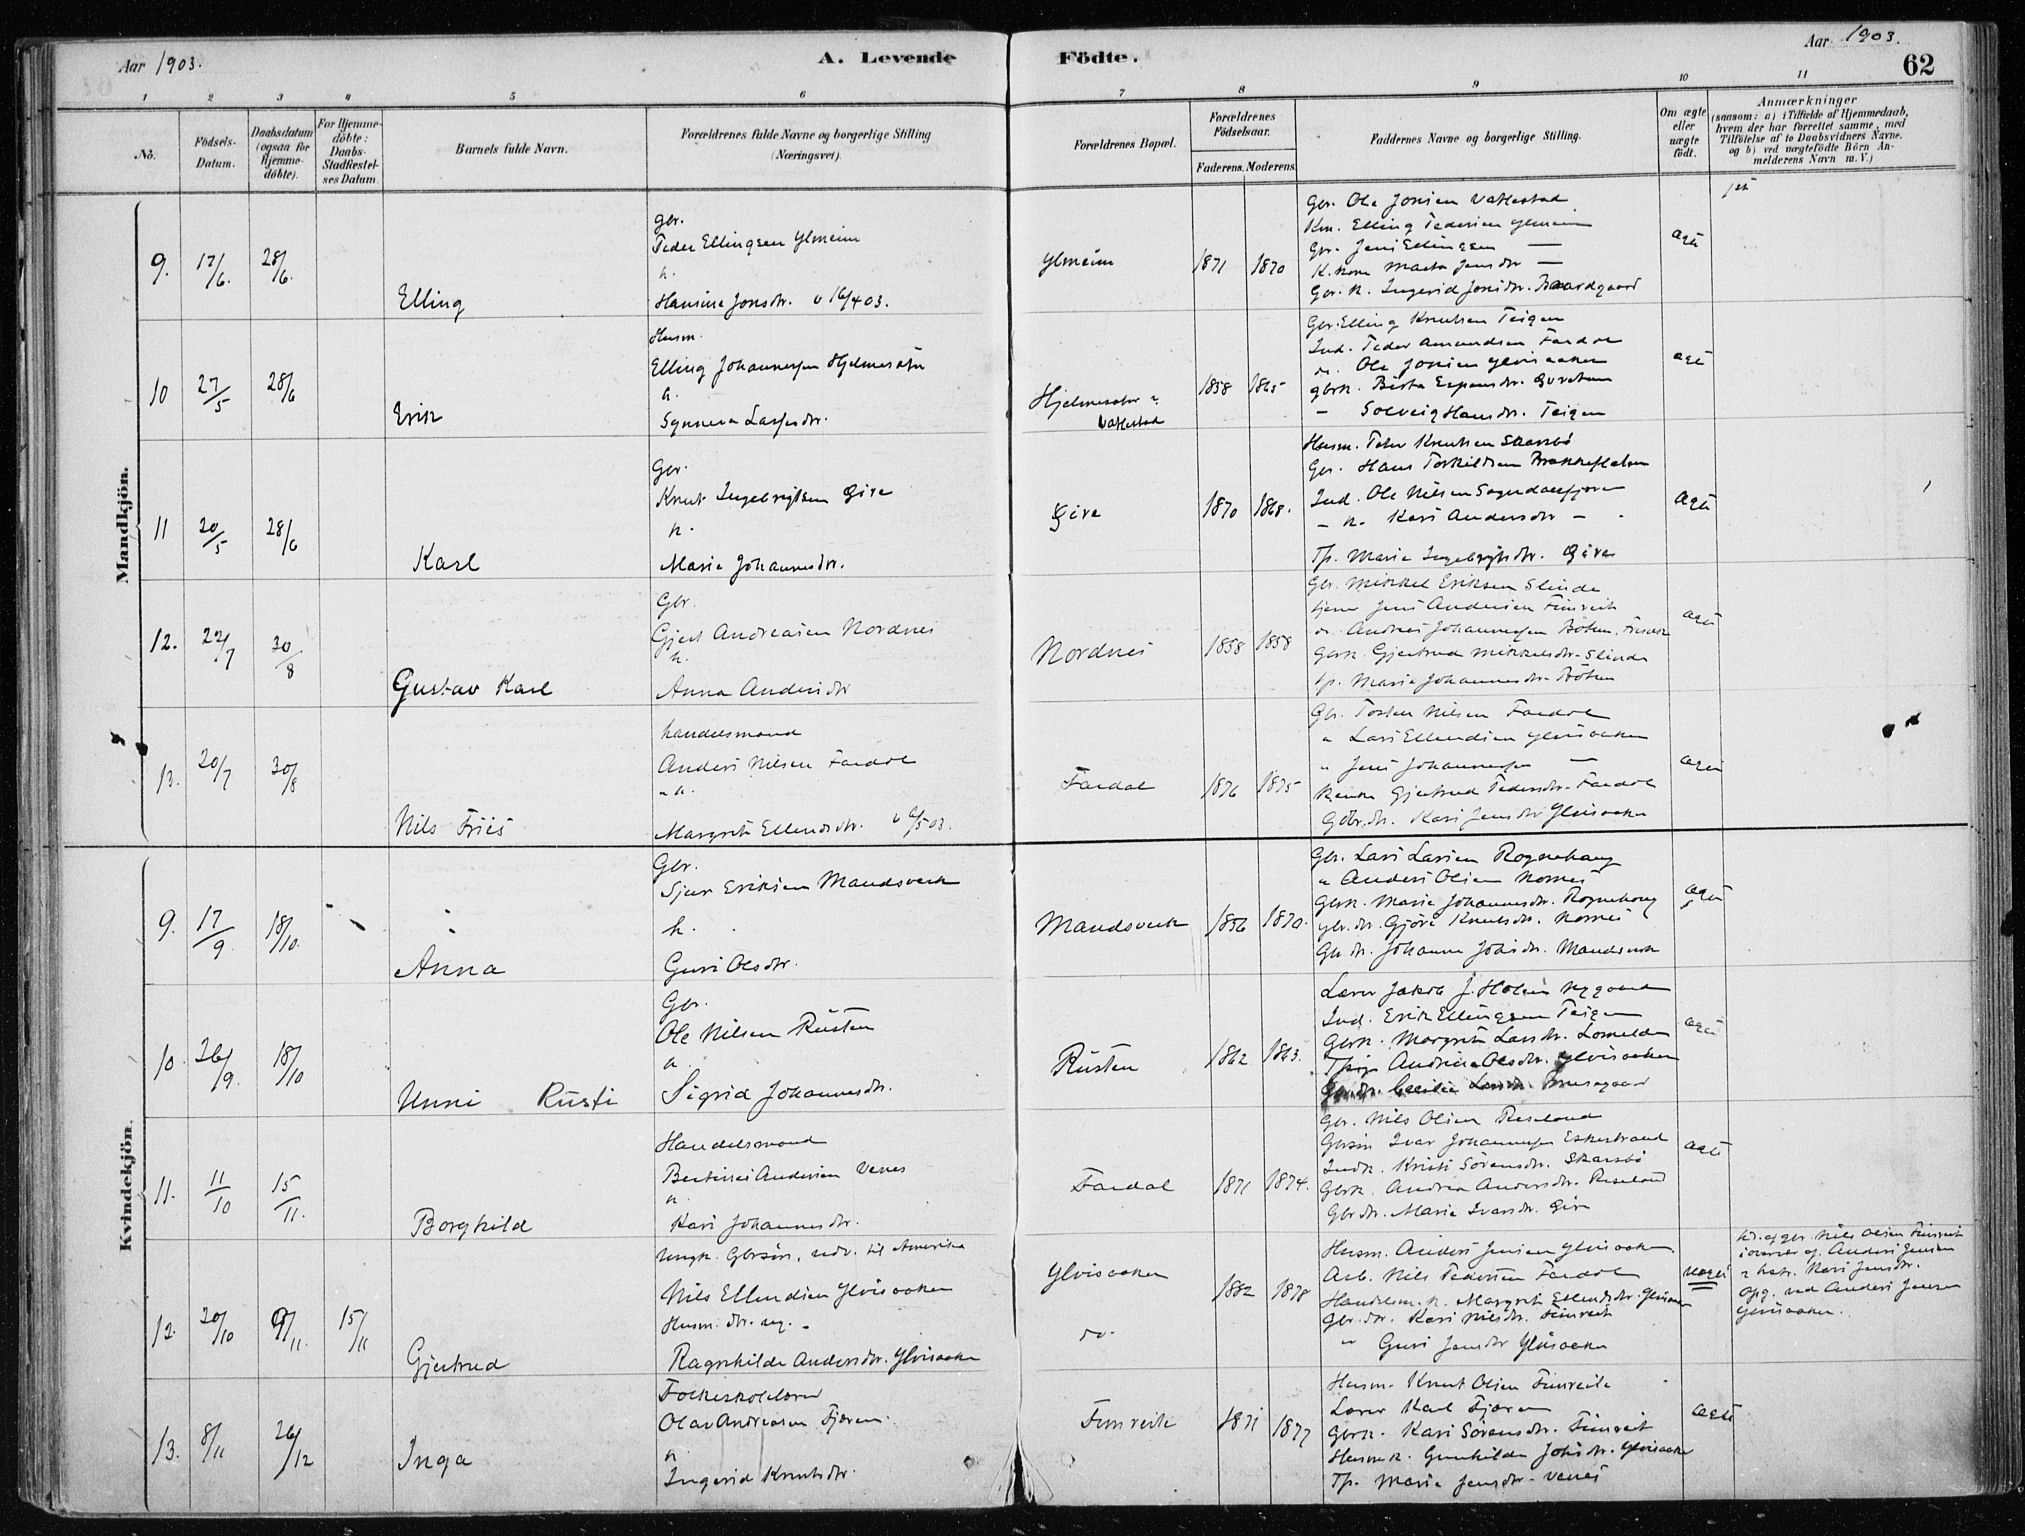 Aar 1903.
A. Levende Födte.
Aar 1903.
62
1 2 3 4 5 6 7 8 9 10 11
No.
Födsels-Datum.
Daabsdatum (ogsaa for Hjemme-döbte).
For Hjemme-döbte: Daabs-Stadfæstel-ses Datum.
Barnets fulde Navn.
Forældrenes fulde Navne og borgerlige Stilling (Næringsvei).
Forældrenes Bopæl.
Forældrenes Födselsaar.
Faderens. Moderens.
Faddernes Navne og borgerlige Stilling.
Om ægte eller uægte födt.
Anmærkninger
(saasom: a) i Tilfælde af Hjemmedaab,
hvem der har forrettet samme, med
Tilföielse af to Daabsvidners Navne.
og b) ved uægtefödte Börn An-
melderens Navn m. V.)
Mandkjön.
9. 17/6. 28/6.
Elling
gbr.
Peder Ellingsen Ylmeim
h.
Hansine Jonsdr. v 16/4 03.
Ylmeim
1871 1870
Gbr. Ole Jonsen Vatlestad
Km. Elling Pedersen Ylmeim
Gbr. Jens Ellingsen —
K. kone Marta Jensdr —
Gbr. k. Ingerid Jonsdr. Baardgaard
ægte
10 27/5 28/6
Erik
Husm.
Elling Johannessen Hjelmesæter
h.
Synneva Lassesdr.
Hjelmesæter
Vatlestad
1858 1865
Gbr. Elling Knutsen Teigen
Ind. Peder Amundsen Fardal
Ole Jonsen Ylvisaaker
gbrk. Berta Espensdr.
— Solveig Hansdr. Teigen
ægte
11 20/5 28/6
Karl
Gbr.
Knut Ingebrigtsen Gire
h.
Marie Johannesdr.
Gire
1870 1868.
Husm. Peder Knutsen Skarsbö
Gbr. Hans Torkildsen
Ind. Ole Nilsen Sogndalsfjoren
— k. Kari Andersdr —
Tp. Marie Ingebrigtsdr. Gire
ægte
12. 22/7 30/8
Gustav Karl
Gbr.
Gjert Andreasen Nordnes
h.
Anna Andersdr
Nordnes
1858 1858
Gbr. Mikkel Eriksen Slinde
Jens Andersen Fimreite
Andreas Johannessen Böten.
Gbrk. Gjertrud Mikkelsdr. Slinde
tp. Marie Johannesdr. Böten
ægte
13. 20/7 30/8
Nils Friis
handelsmand
Anders Nilsen Fardal
h.
Margrete Ellendsdr. v 6/5 03.
Fardal
1876 1875
Gbr. Torsten Nilsen Fardal
" Lars Ellendsen Ylvisaaker
" Jens Johannessen —
Gjertrud Pedersdr. Fardal
Gbr. dr. Kari Jensdr Ylvisaaker
ægte
Kvindekjön.
9. 17/9. 18/10.
Anna
Gbr.
Sjur Eriksen Mandsverk
h.
Guri Olsdr.
Mandsverk
1856 1870.
Gbr. Lars Larsen Rognehaug
" Anders Olsen Nornes
Gbrk. Marie Johannesdr. Rognehaug
gbr. dr. Gjöre Knutsdr. Nornes
Gbr dr. Johanna Johsdr. Mandsverk
ægte
10. 26/9. 18/10
Unni Rusti
Gbr.
Ole Nilsen Rusten
h.
Sigrid Johannesdr.
Rusten
1862 1863.
Lærer Jakob J. Holen Nygaard
Ind. Erik Ellingsen Teigen
Gbrk. Margrete Larsdr. Lomelde
Tpige Andrine Olsdr. Ylvisaaker
Gbr. dr. Cecilie Larsdr.
ægte
11. 11/10 15/11.
Borghild
Handelsmand
Bertinius Andersen Venes
h.
Kari Johannesdr.
Fardal
1871 1874.
Gbr. Nils Olsen Reseland
Gbrsön Ivar Johannessen Eskestrand
Indk. Kristi Sörensdr. Skarsbö
Gbrk. Andrea Andersdr. Reseland
Gbr dr. Marie Ivarsdr. Gire
ægte
12. 20/10 9/11. 15/11
Gjertrud
Ungk. Gbrsön, udv. til Amerika
Nils Ellendsen Ylvisaaker
Husm. dr. ug. -
Ragnhilde Andersdr. Ylvisaaker
Ylvisaaker
do.
1882 1878
Husm. Anders Jensen Ylvisaaker
Arb. Nils Pedersen Fardal
Handelsm. k. Margrete Ellendsdr.
Gbr. dr. Kari Nilsdr. Fimreite
" Guri Jensdr Ylvisaaker
uægte
hd. af gbr. Nils Olsen Fimreite
i overvær af Anders Jensen
Kari Jensdr.
Opg. ved Anders Jensen
Ylvisaaker.
13. 8/11 26/12
Inga
Folkeskolelærer
Olav Andreasen Fjæren
h.
Ingerid Knutsdr.
Fimreite
1871 1877
Husm. Knut Olsen Fimreite
Lærer Karl Fjæren
Gbrk. Kari Sörensdr. Fimreite
Husm k. Gunhilde Johsdr. Ylvisaaker
Tp. Marie Jensdr. Venes
ægte